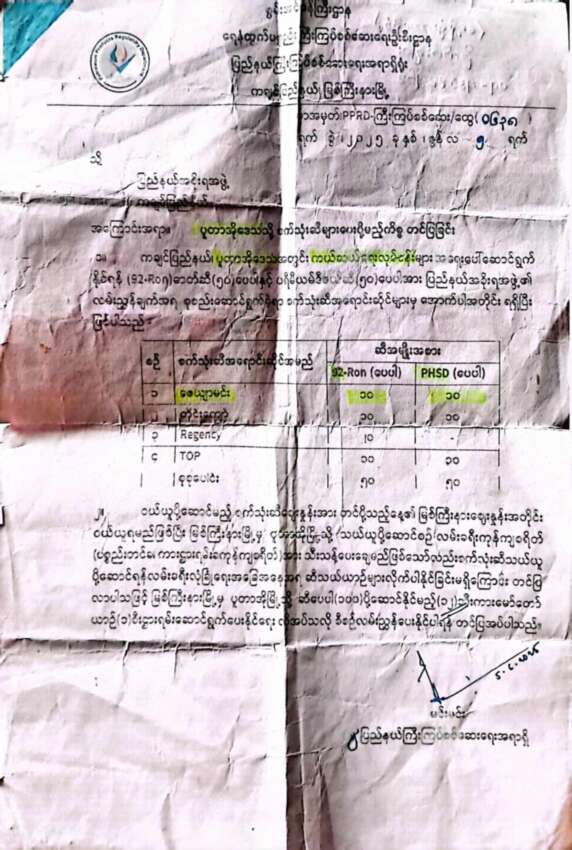 စွမ်းအင်ဝန်ကြီးဌာန
ရေနံထွက်ပစ္စည်း ကြီးကြပ်စစ်ဆေးရေးဦးစီးဌာန
ပြည်နယ်ကြီးကြပ်စစ်ဆေးရေးအရာရှိရုံး
ကချင်ပြည်နယ်၊ မြစ်ကြီးနားမြို့
စာအမှတ်၊ PPRD-ကြီးကြပ်စစ်ဆေး/ထွေ(၀၆၃၈)
ရက် စွဲ ၊ ၂၀၂၅ ခု နှစ် ၊ ဇွန် လ ၅ ရက်
သို့
ပြည်နယ်အစိုးရအဖွဲ့
ကချင်ပြည်နယ်
အကြောင်းအရာ။ ပူတာအိုဒေသသို့ စက်သုံးဆီများပေးပို့မည့်ကိစ္စ တင်ပြခြင်း
၁။ ကချင်ပြည်နယ်၊ ပူတာအိုဒေသအတွင်း ကယ်ဆယ်ရေးလုပ်ငန်းများ အရေးပေါ်ဆောင်ရွက်
နိုင်ရန် (92-Ron)ဓာတ်ဆီ(၅၀)ပေပါနှင့် ပရီမီယမ်ဒီဇယ်ဆီ(၅၀)ပေပါအား ပြည်နယ်အစိုးရအဖွဲ့၏
လမ်းညွှန်ချက်အရ စုစည်းဆောင်ရွက်ခဲ့ရာ စက်သုံးဆီအရောင်းဆိုင်များမှ အောက်ပါအတိုင်း ရရှိပြီး
ဖြစ်ပါသည် -
စဉ် စက်သုံးဆီအရောင်းဆိုင်အမည် ဆီအမျိုးအစား
92-Ron (ပေပါ) PHSD (ပေပါ)
၁ ဇေယျာမင်း ၁၀ ၁၀
၂ ၁၀ ၁၀
၃ Regency ၂၀ -
၄ TOP ၁၀ ၃၀
စုစုပေါင်း ၅၀ ၅၀
၂။ ဝယ်ယူပို့ဆောင်မည့် စက်သုံးဆီဈေးနှုန်းအား တင်ပို့သည့်နေ့၏ မြစ်ကြီးနားဈေးနှုန်းအတိုင်း
ဝယ်ယူရမည်ဖြစ်ပြီး မြစ်ကြီးနားမြို့မှ ပူတာအိုမြို့သို့ သယ်ယူပို့ဆောင်စဉ် လမ်းခရီးကုန်ကျစရိတ်
(ပစ္စည်းတင်ခ၊ ကားငှားရမ်းခကုန်ကျစရိတ်)အား သီးသန့်ပေးချေမည်ဖြစ်သော်လည်း စက်သုံးဆီသယ်ယူ
ပို့ဆောင်ရန်လမ်းခရီးလုံခြုံရေးအခြေအနေအရ ဆီသယ်ယာဉ်များလိုက်ပါနိုင်ခြင်းမရှိကြောင်း တင်ပြ
လာပါသဖြင့် မြစ်ကြီးနားမြို့မှ ပူတာအိုမြို့သို့ ဆီပေပါ(၁၀၀)ပို့ဆောင်နိုင်မည့် (၁၂)ဘီးကားမော်တော်
ယာဉ်(၁)စီးငှားရမ်းဆောင်ရွက်ပေးနိုင်ရေး လိုအပ်သလို စီစဉ်လမ်းညွှန်ပေးနိုင်ပါရန် တင်ပြအပ်ပါသည်။
၅.၆.၂၀၂၅
မင်းမင်း
ပြည်နယ်ကြီးကြပ်စစ်ဆေးရေးအရာရှိ